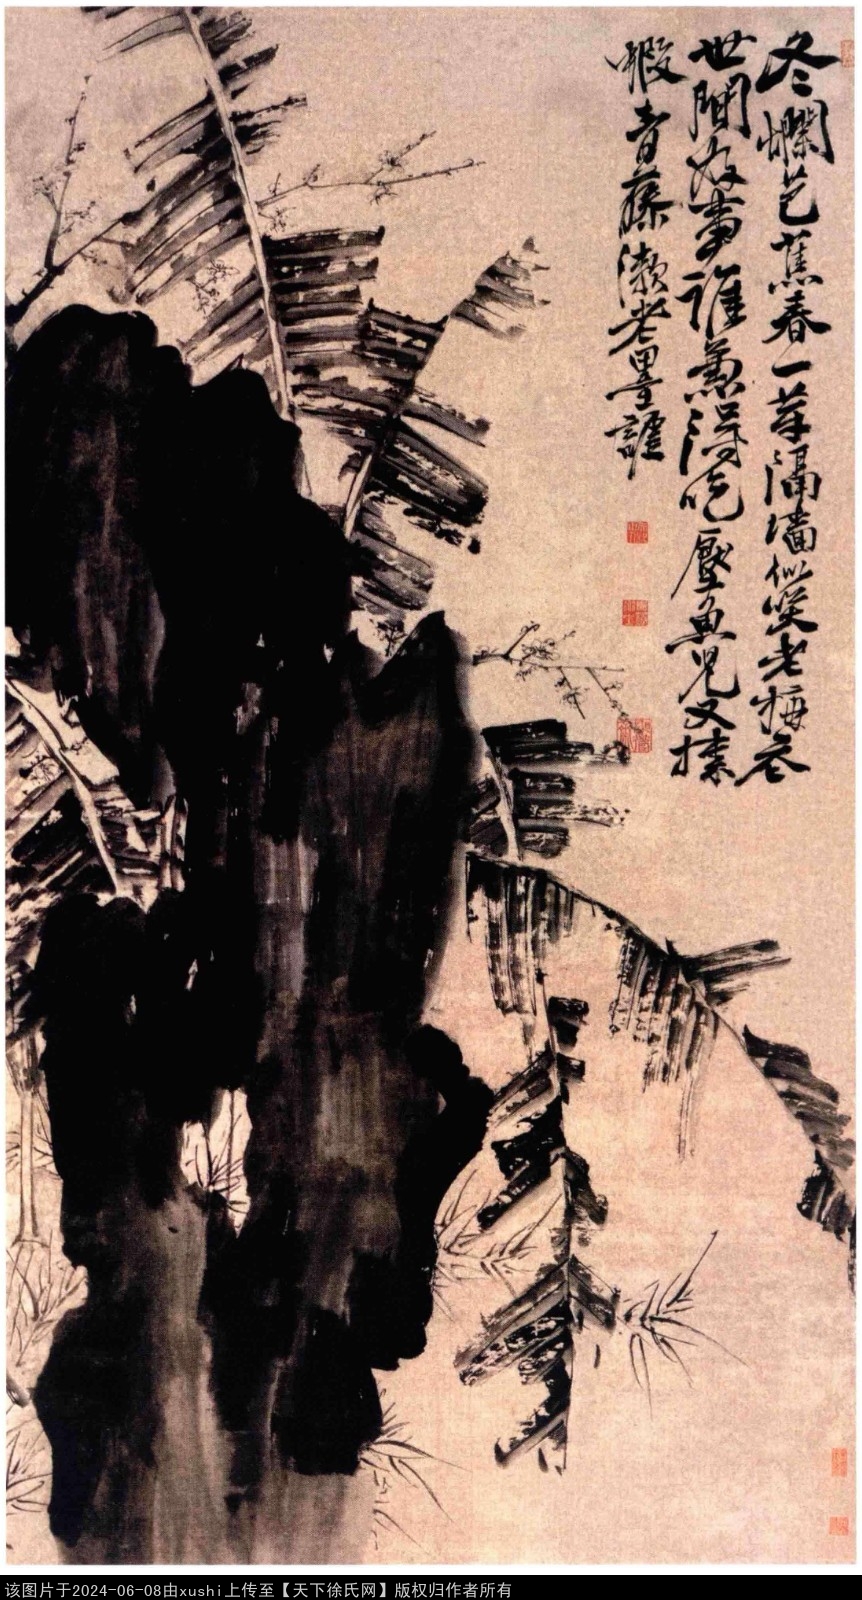 冬爛芭蕉春一芽隔墻似笑老梅花
世間好事誰兼得吃厭魚兒又揀
蝦青藤漱老墨謔
该图片于2024-06-08由xushi上传至【天下徐氏网】版权归作者所有